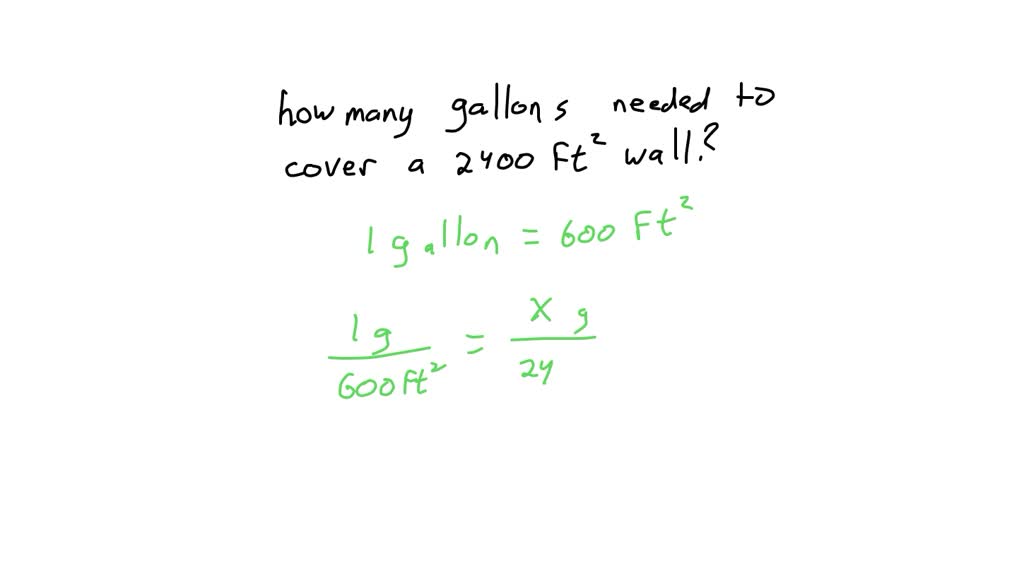 how many gallons needed to
cover a 2400 Ft² wall?
1 gallon = 600 Ft²
1 g / 600 Ft² = X g / 24